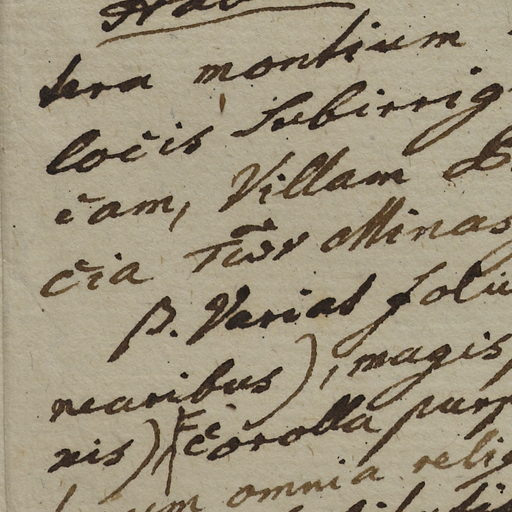 Hab
sera montium
locis Subirrig
cam, Villam
cia Minas
β. Variat foli
nearibus), magis
nis) Corolla purp
um omnia reli